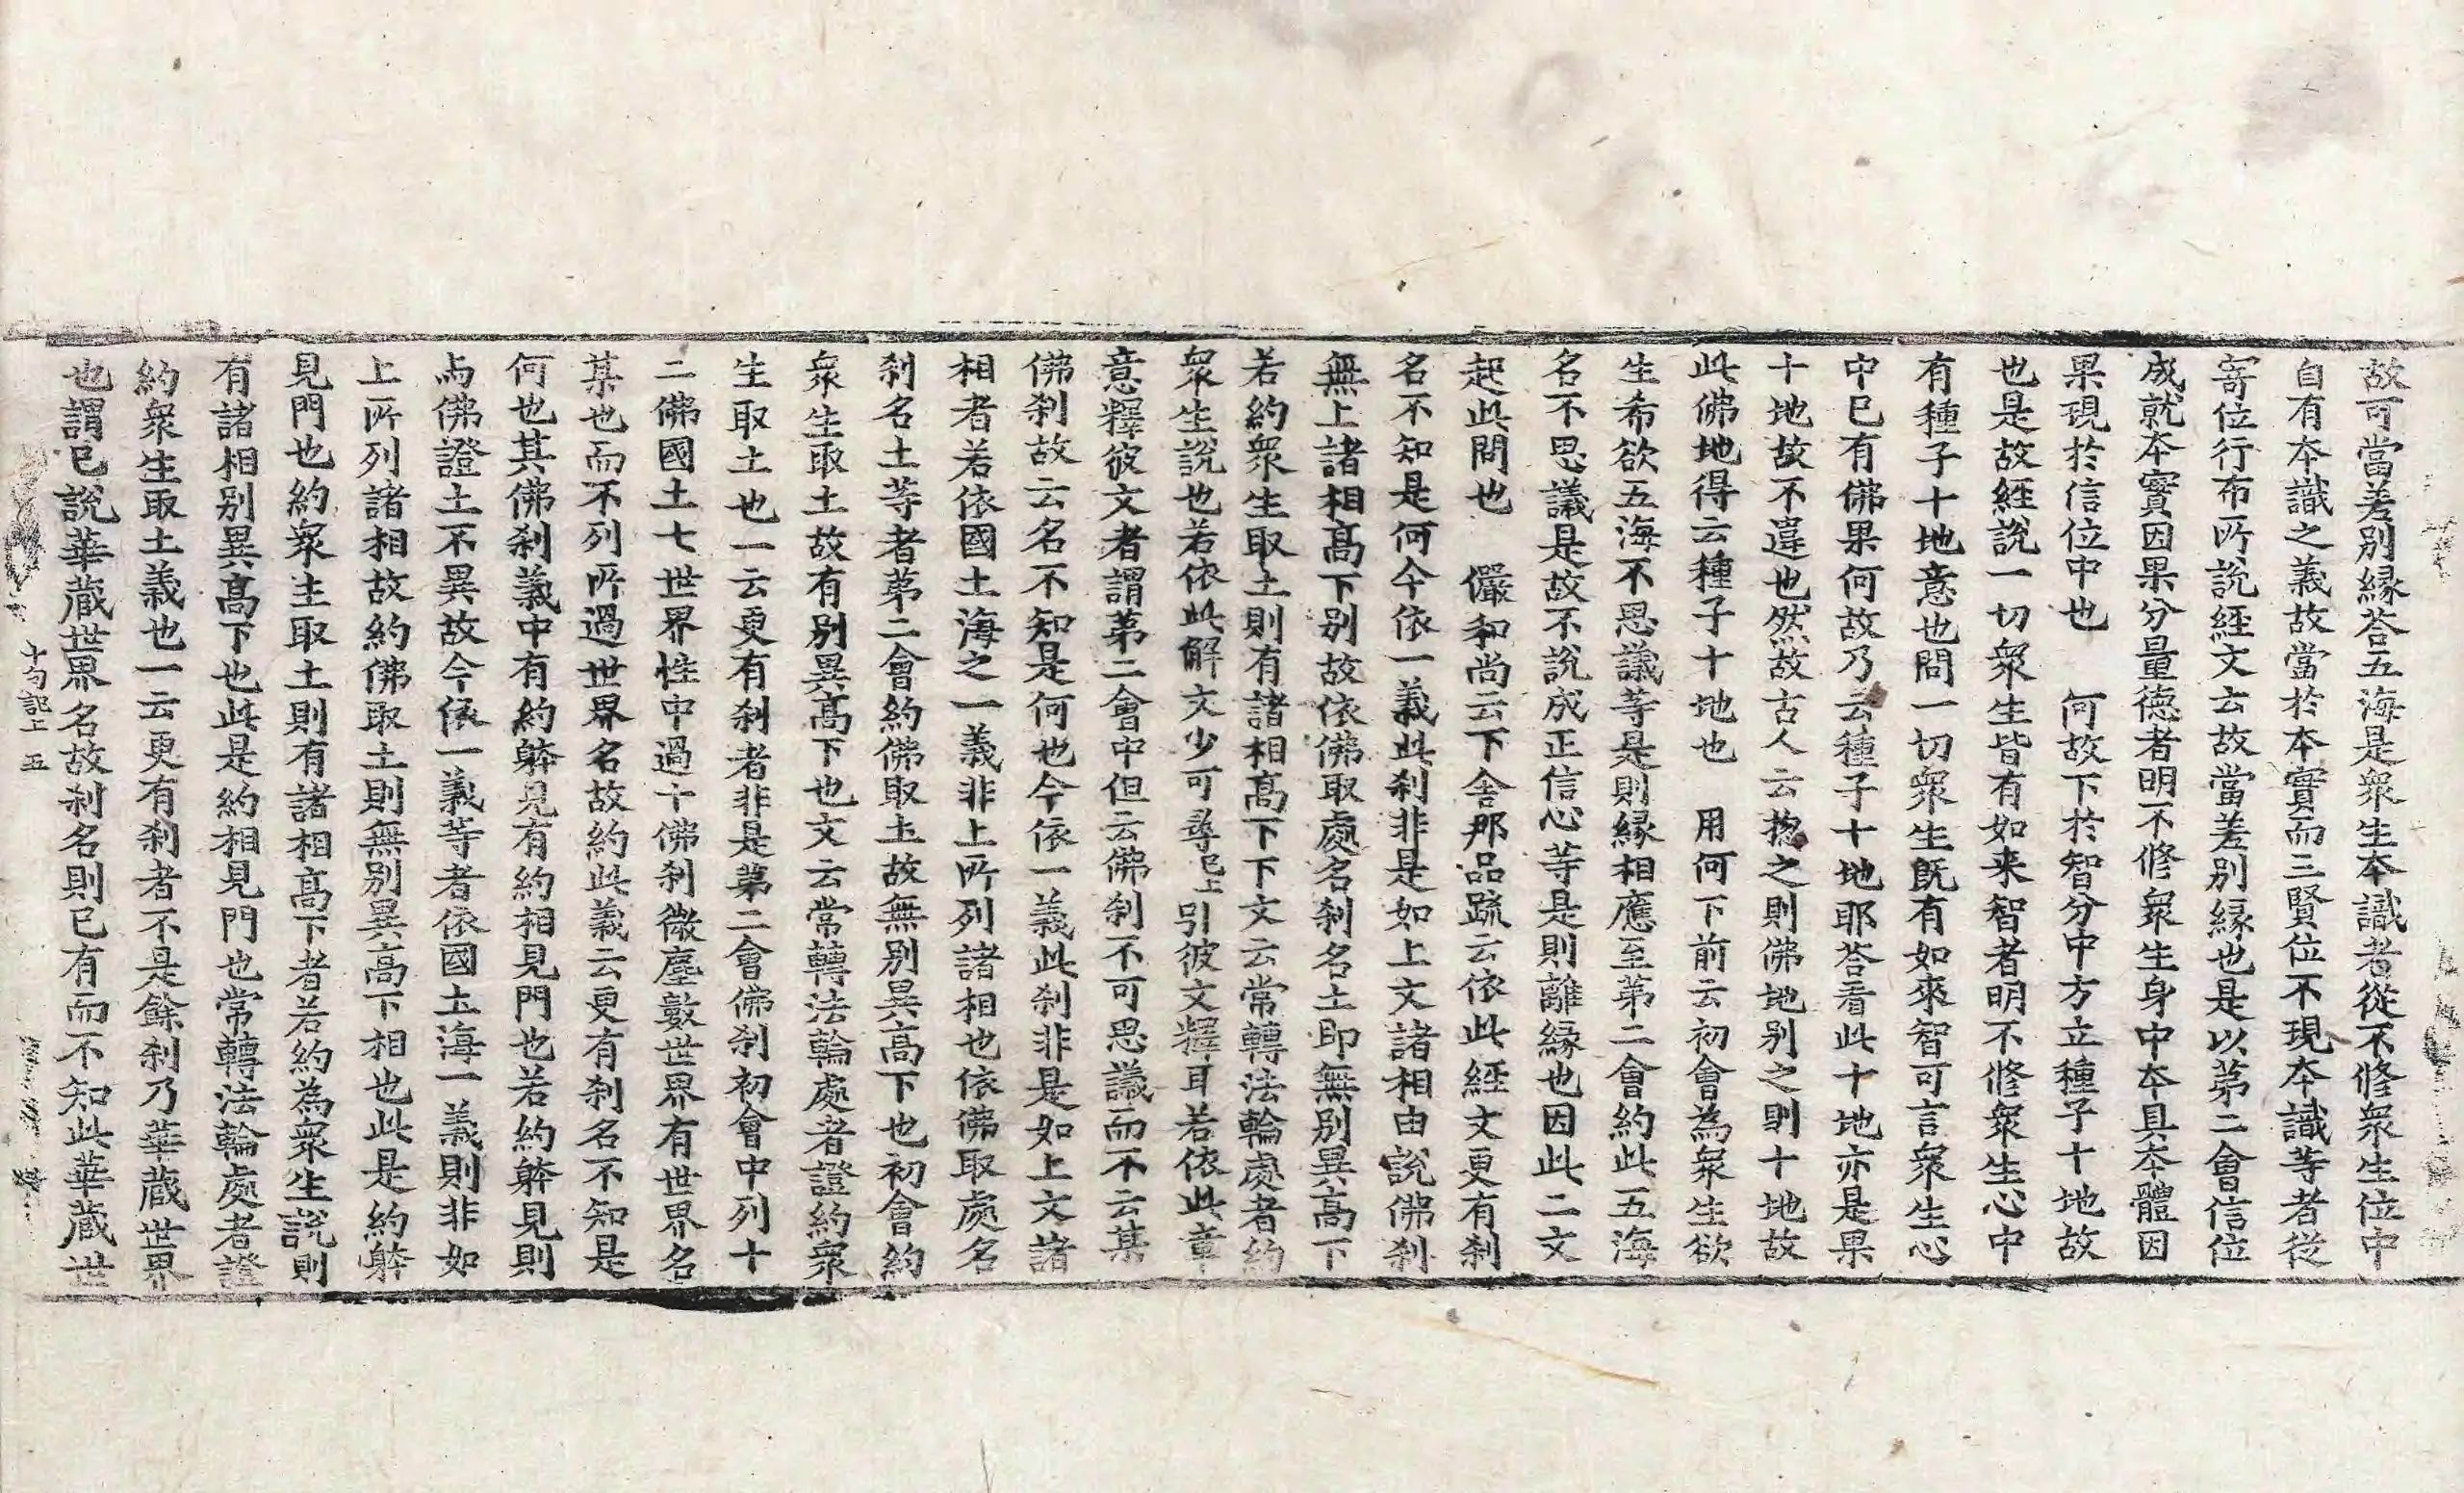 故可當差別縁荅五海是衆生本識者從不修衆生位中
自有本識之義故當於本實而三賢位不現本識等者從
寄位行布所說經文云故當差別縁也是以第二會信位
成就本實因果分量德者明不修衆生身中本具本體因
果現於信位中也　何故下於智分中方立種子十地故
也是故經說一切衆生皆有如来智者明不修衆生心中
有種子十地意也問一切衆生既有如來智可言衆生心
中已有佛果何故乃云種子十地耶荅看此十地亦是果
十地故不違也然故古人云揔之則佛地別之則十地故
此佛地得云種子十地也　用何下前云初會為衆生欲
生希欲五海不思議等是則縁相應至第二會約此五海
名不思議是故不說成正信心等是則離縁也因此二文
起此問也　儼和尚云下舍那品䟽云依此經文更有刹
名不知是何今依一義此刹非是如上文諸相由說佛刹
無上諸相髙下別故依佛取處名刹名土即無別異高下
若約衆生取土則有諸相髙下下文云常轉法輪處者約
衆生說也若依此解文少可尋已上引彼文釋耳若依此章
意釋彼文者謂第二會中但云佛刹不可思議而不云某
佛刹故云名不知是何也今依一義此刹非是如上文諸
相者若依國土海之一義非上所列諸相也依佛取處名
刹名土等者第二會約佛取土故無別異高下也初會約
衆生取土故有別異髙下也文云常轉法輪處者證約衆
生取土也一云更有刹者非是第二會佛刹初會中列十
二佛國土七世界性中過十佛刹微塵數世界有世界名
某也而不列所過世界名故約此義云更有刹名不知是
何也其佛刹義中有約躰見有約相見門也若約躰見則
与佛證土不異故今依一義等者依國土海一義則非如
上所列諸相故約佛取土則無別異高下相也此是約躰
見門也約衆生取土則有諸相高下者若約為衆生說則
有諸相別異髙下也此是約相見門也常轉法輪處者證
約衆生取土義也一云更有刹者不是餘刹乃華蔵世界
也謂已說華蔵世界名故刹名則已有而不知此華蔵世
十句記上　五